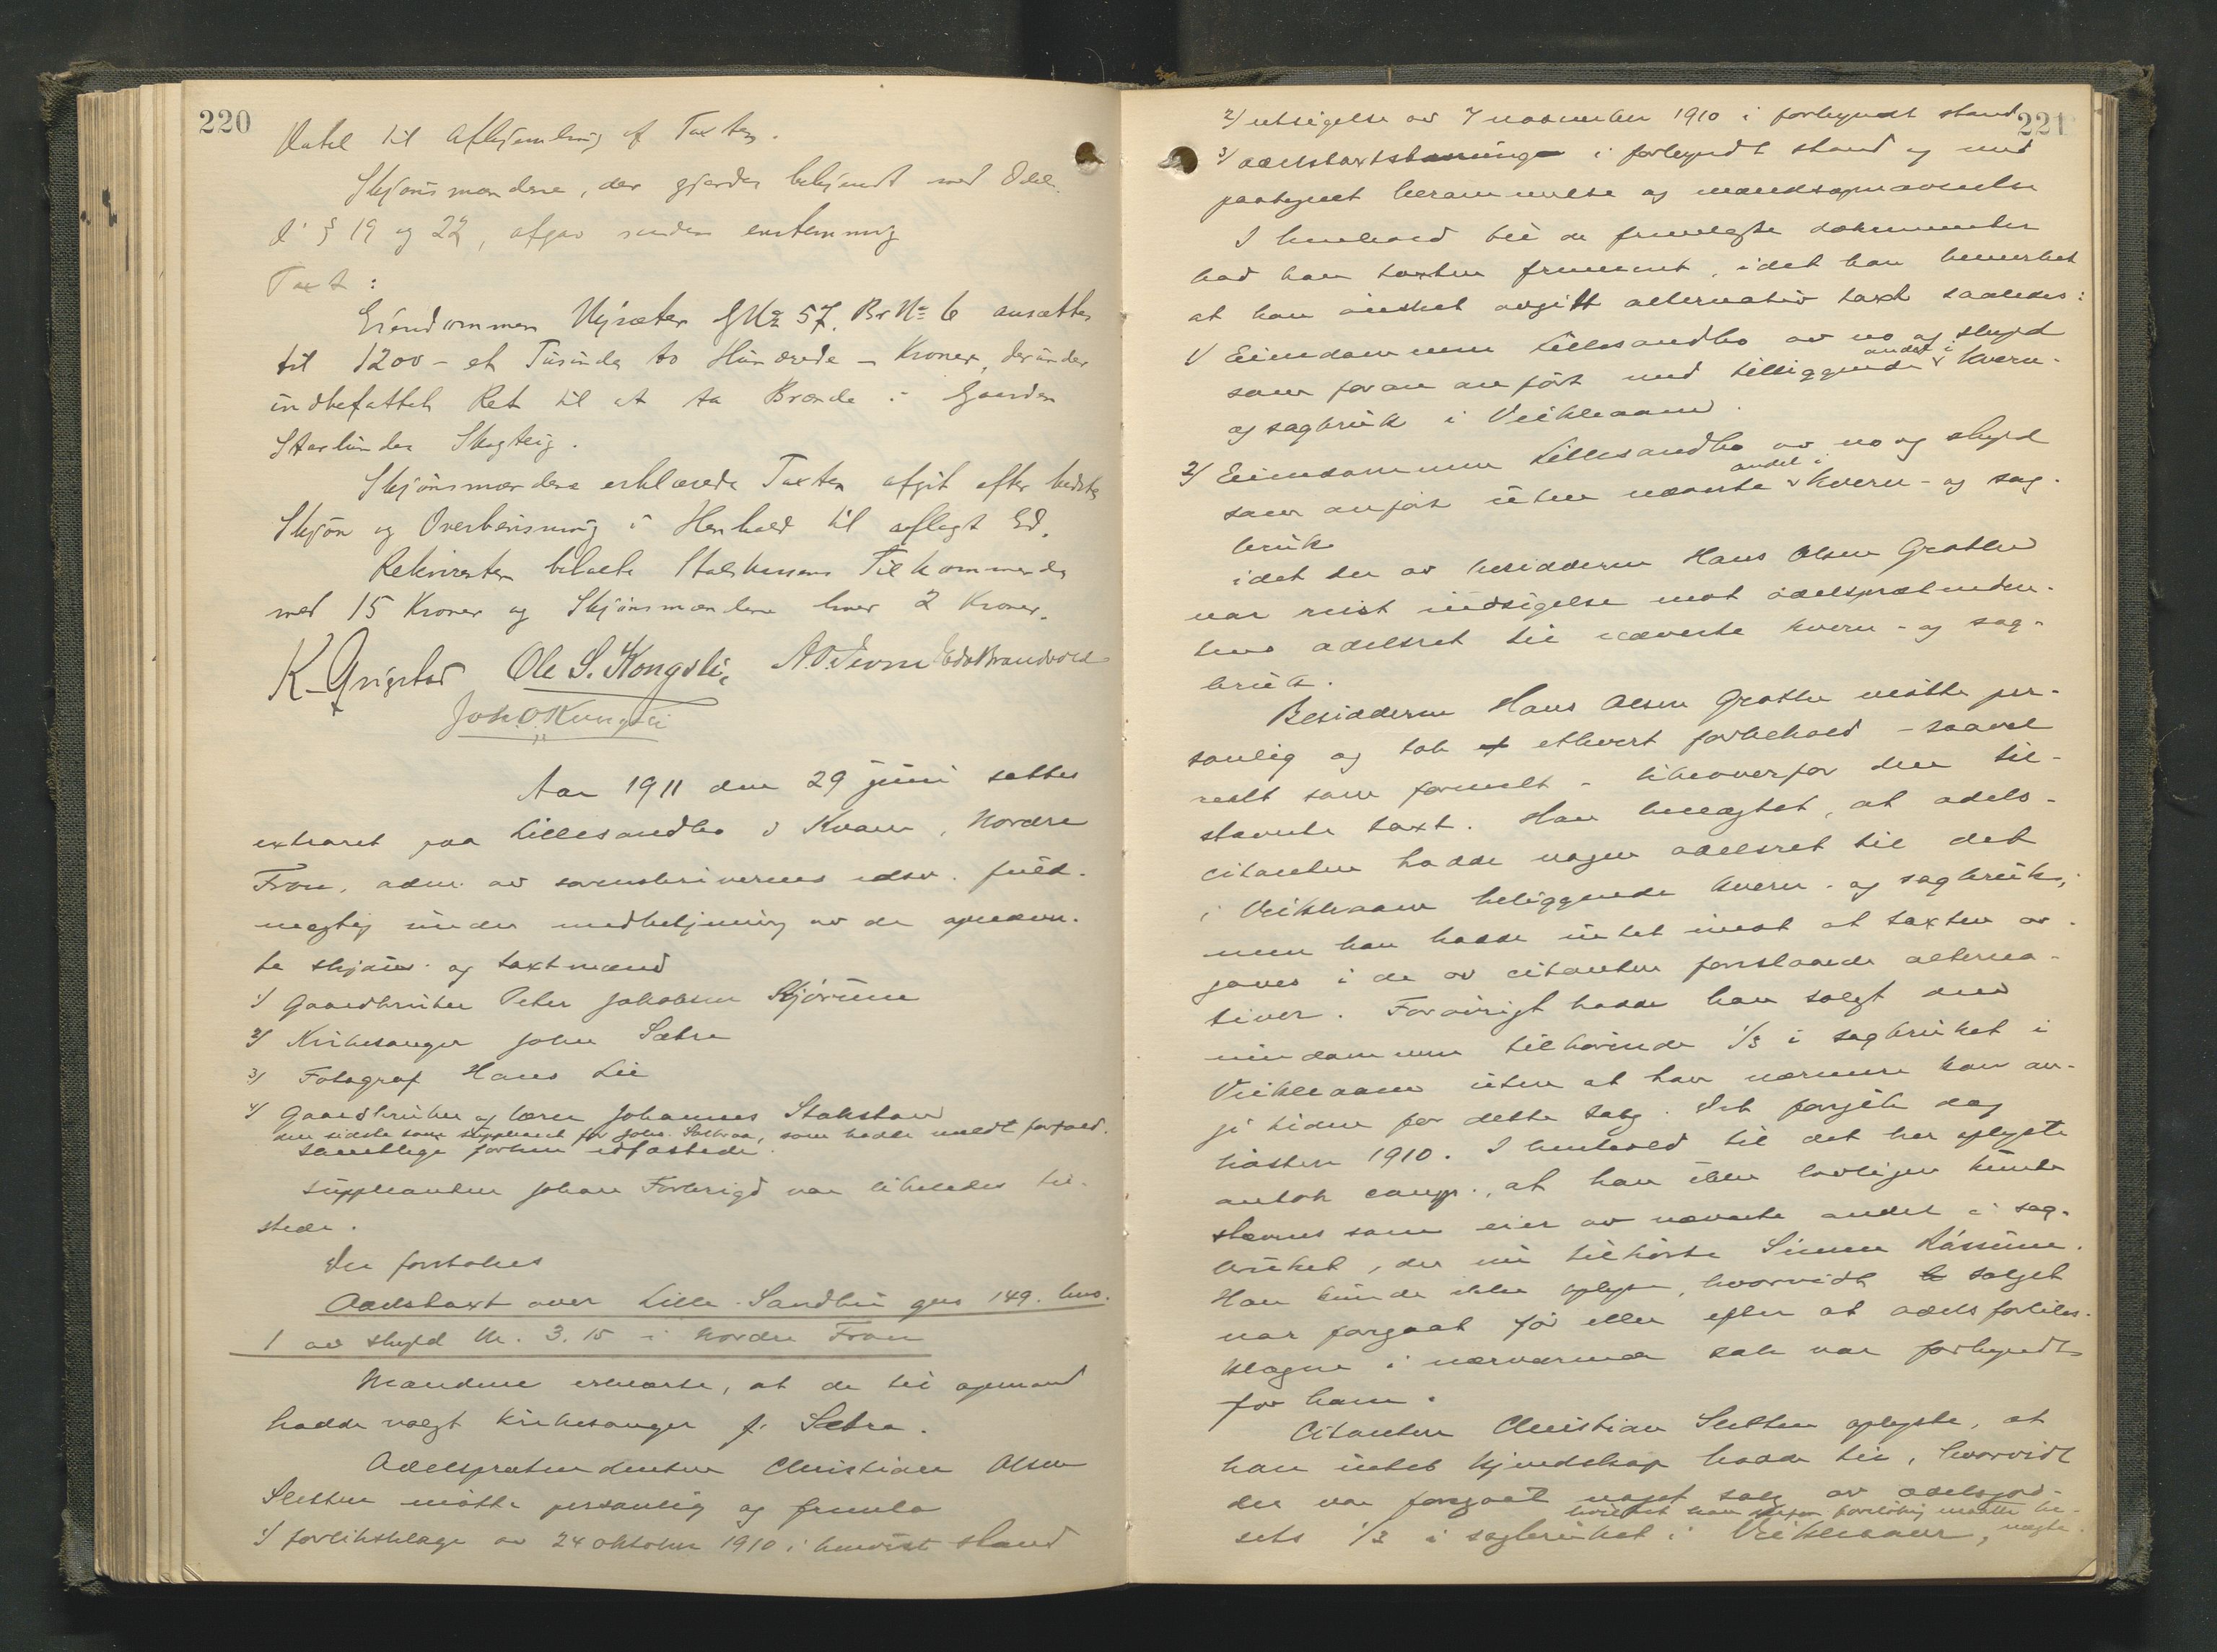 220
til Afhjemling af Taxten.
Skjønsmændene, der gjordes bekjendt med Odels
l's § 19 og 22, afgav enstemmig
Taxt:
Eiendommen Nysæter GNo 57, Br No 6 ansættes
til 1200 - et Tusinde to Hundrede - Kroner, derunder
indbefattet Ret til at ta Brænde i Gaarden
Skogteig.
Skjønsmændene erklærede Taxten afgit efter bedste
Skjøn og Overbevisning i Henhold til aflagt Ed.
Rekvirenten betalte Tilkommende
med 15 Kroner og Skjønsmændene hver 2 Kroner.
K. Grigstad Ole S. Kongsli, Brandvold
Joh. O. Kongsli
Aar 1911 den 29 juni sattes
extraret paa Lillesandbo i Kvam, Nordre
Fron, adm. av sorenskriverens edsv. fuld-
mægtig under medbetjening av de opnævn-
te skjøns- og taxtmænd
1/ Gaardbruker Peter Jakobsen Kjørum
2/ Kirkesanger John Sætre
3/ Fotograf Hans Lie
4/ Gaardbruker og lærer Johannes Stakstad
den sidste som suppleant for Johs. som hadde meldt forfald.
samtlige forhen edfæstede.
Suppleanten Johan Forbrigd var likeledes til-
stede.
Der foretokes
Odelstaxt over Lille-Sandbu gno 149. bno.
1 av skyld M. 3.15 i Nordre Fron
Mændene erklærte, at de til opmand
hadde valgt kirkesanger J. Sætre.
Odelsprætendenten Christian Olsen
Sletten møtte personlig og fremla
1/ forliksklage av 24 oktober 1910 i henvist stand
221
2/ utsigelse av 7 november 1910 i forkyndt stand
3/ odelstaxtstævning i forkyndt stand og med
paategnet berammelse og mandsopnævnelse
I henhold til de fremlagte dokumenter
bad han taxten fremmet, idet han bemerket
at han ønsket avgitt alternativ taxt saaledes:
1/ Eiendommen Lillesandbo av no og skyld
som foran anført med tilliggende andel i kvern-
og sagbruk i Veikleaaen.
2/ Eiendommen Lillesandbo av no og skyld
som anført uten nævnte andel i kvern- og sag-
bruk
idet der av besidderen Hans Olsen Grotlien
var reist indsigelse mot odelsprætenden-
tens odelsret til nævnte kvern- og sag-
bruk.
Besidderen Hans Olsen Grotlien møtte per-
sonlig og tok ethvert forbehold - saavel
reelt som formelt - likeoverfor den til-
stævnte taxt. Han benegtet, at odels-
citanten hadde nogen odelsret til det
i Veikleaaen beliggende kvern- og sagbruk,
men han hadde intet imot at taxten av-
gaves i de av citanten foreslaaede alterna-
tiver. Forøvrigt hadde han solgt den
eiendommen tilhørende 1/3 i sagbruket i
Veikleaaen uten at han nærmere kan an-
gi tiden for dette salg. Det foregik dog
høsten 1910. I henhold til det her oplyste
antok comp., at han ikke lovligen kunde
stævnes som eier av nævnte andel i sag-
bruket, der nu tilhørte Simen Kåssum.
Han kunde ikke oplyse, hvorvidt salget
var foregaat før eller efter at odelsforliks-
klagen i nærværende sak var forkyndt
for ham.
Citanten Christian Sletten oplyste, at
han intet kjendskap hadde til, hvorvidt
der var foregaat noget salg av odelsgod-
sets 1/3 i sagbruket i Veikleaaen, hvilket han forløbig maatte be-
nægte.